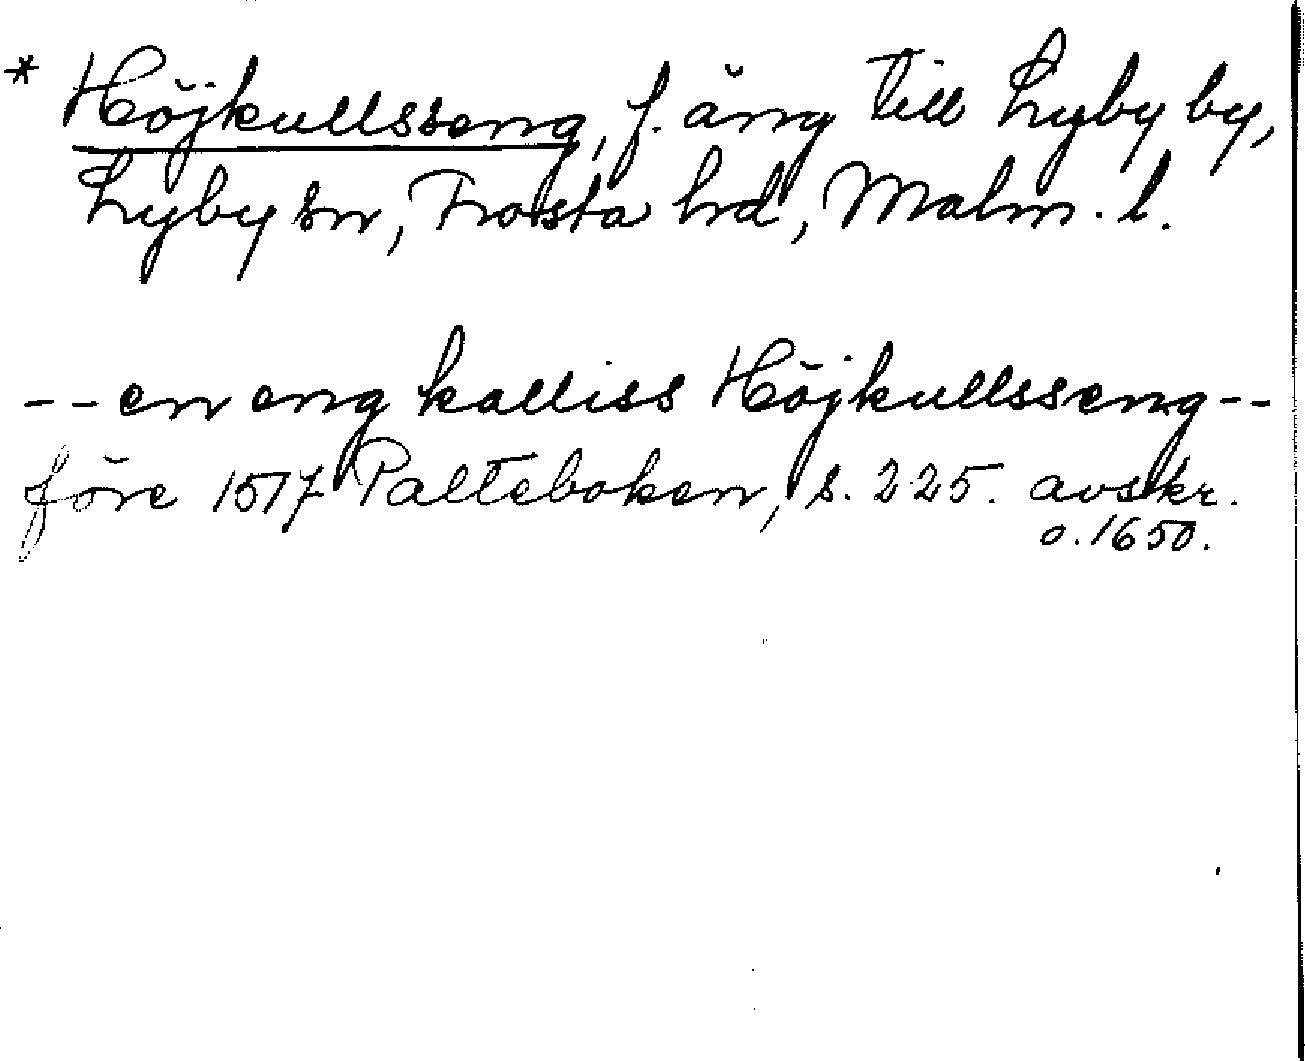 * Höjkullsseng, f. äng till Lyby by,
Lyby sn, Frosta hd, Malm. l.
-- en eng kalliss Höjkullsseng --
före 1517 Palteboken, s. 225. avskr.
o. 1650.